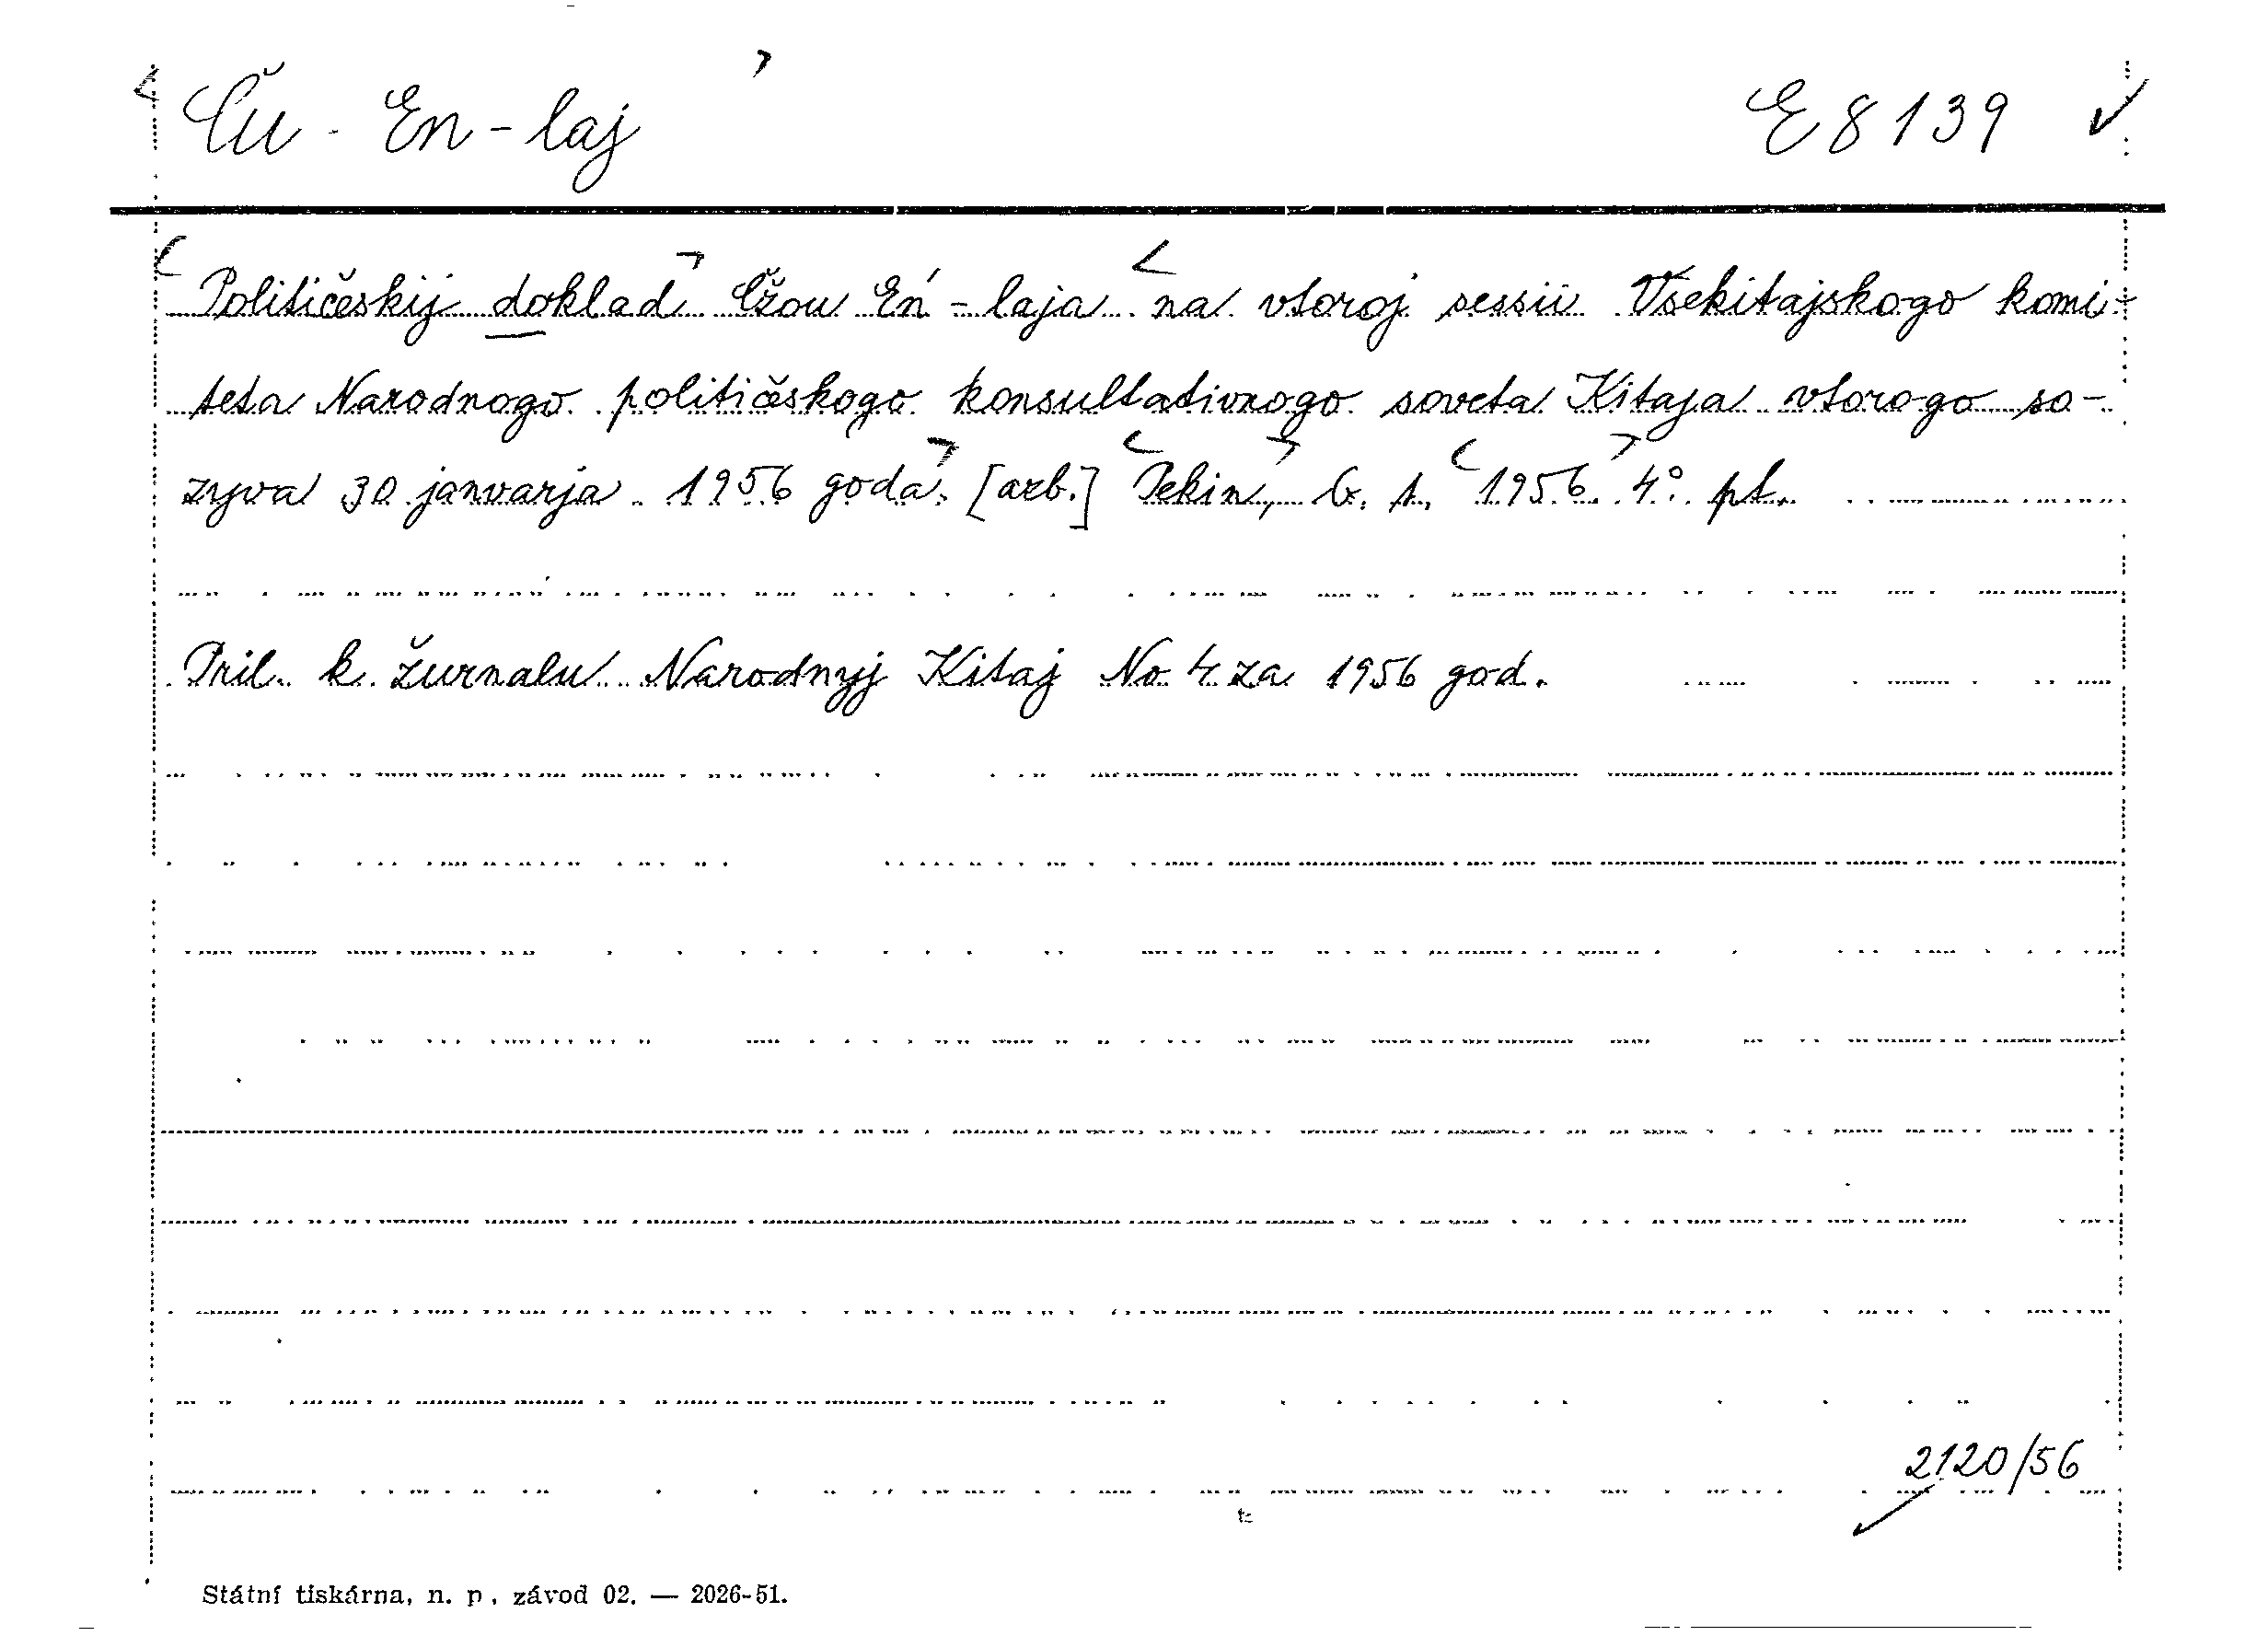 Ču-En-laj E 8139
Političeskij doklad Čžou En'-laja na vtoroj sessii Vsekitajskogo komi-
teta Narodnogo političeskogo konsultativnogo soveta Kitaja vtorogo so-
zyva 30 janvarja 1956 goda. [azb.] Pekin, b. t. 1956. 4°. pt.
Pril. k žurnalu Narodnyj Kitaj No 4 za 1956 god.
2120/56
Státní tiskárna, n. p., závod 02. — 2026-51.